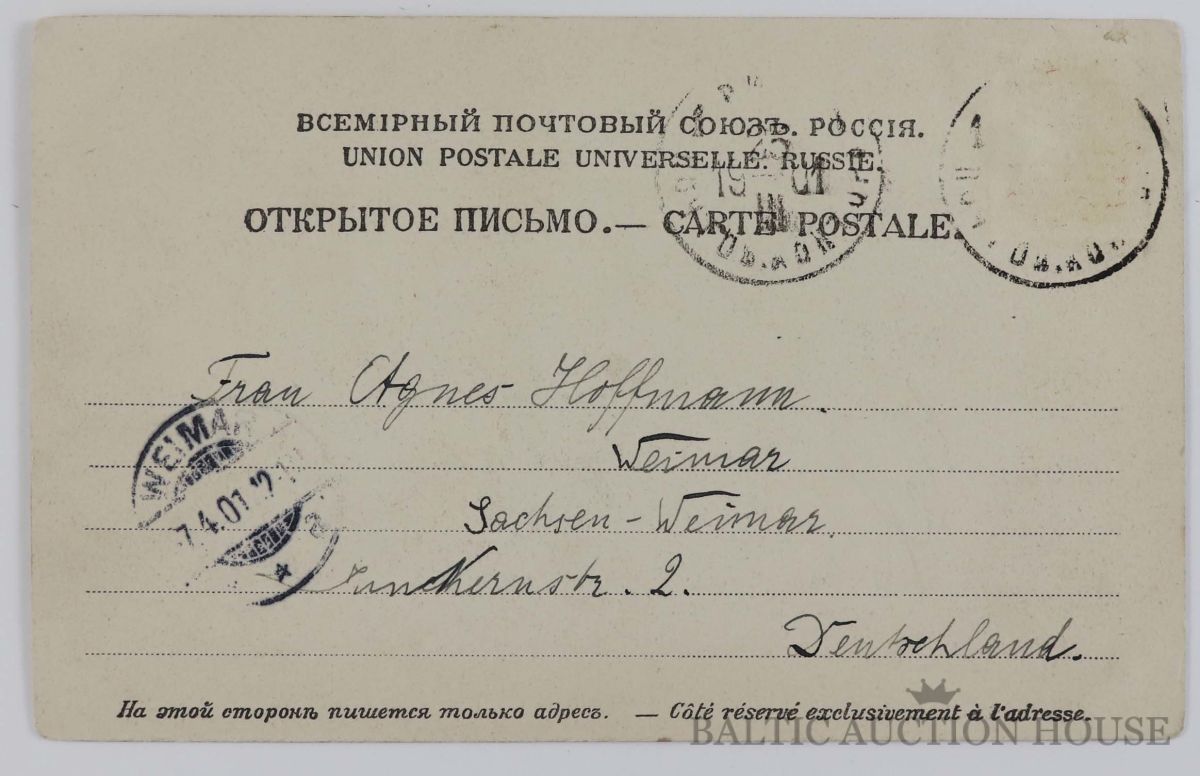 ВСЕМІРНЫЙ ПОЧТОВЫЙ СОЮЗЪ. РОССІЯ.
UNION POSTALE UNIVERSELLE. RUSSIE.
ОТКРЫТОЕ ПИСЬМО.— CARTE POSTALE.
19 01
III
1
Frau Agnes Hoffmann.
WEIMAR
Weimar
7.4.01.12-1
Sachsen-Weimar.
Junkernstr. 2.
Deutschland.
На этой сторонѣ пишется только адресъ. — Côté réservé exclusivement à l'adresse.
BALTIC AUCTION HOUSE